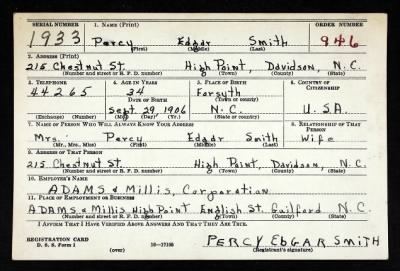 SERIAL NUMBER 1. NAME (Print) ORDER NUMBER
1933 Percy Edgar Smith 946
(First) (Middle) (Last)
2. ADDRESS (Print)
215 Chestnut St. High Point, Davidson, N.C.
(Number and street or R. F. D. number) (Town) (County) (State)
3. TELEPHONE 4. AGE IN YEARS 5. PLACE OF BIRTH 6. COUNTRY OF CITIZENSHIP
44265 34 Forsyth
DATE OF BIRTH (Town or county)
Sept 29, 1906 N.C. U.S.A.
(Exchange) (Number) (Mo.) (Day) (Yr.) (State or country)
7. NAME OF PERSON WHO WILL ALWAYS KNOW YOUR ADDRESS 8. RELATIONSHIP OF THAT PERSON
Mrs. Percy Edgar Smith Wife
(Mr., Mrs., Miss) (First) (Middle) (Last)
9. ADDRESS OF THAT PERSON
215 Chestnut St. High Point, Davidson, N.C.
(Number and street or R. F. D. number) (Town) (County) (State)
10. EMPLOYER'S NAME
ADAMS & Millis, Corporation
11. PLACE OF EMPLOYMENT OR BUSINESS
ADAMS & Millis High Point English St. Guilford N.C.
(Number and street or R. F. D. number) (Town) (County) (State)
I AFFIRM THAT I HAVE VERIFIED ABOVE ANSWERS AND THAT THEY ARE TRUE.
REGISTRATION CARD
D. S. S. Form 1 16—17105 PERCY EDGAR SMITH
(over) (Registrant's signature)